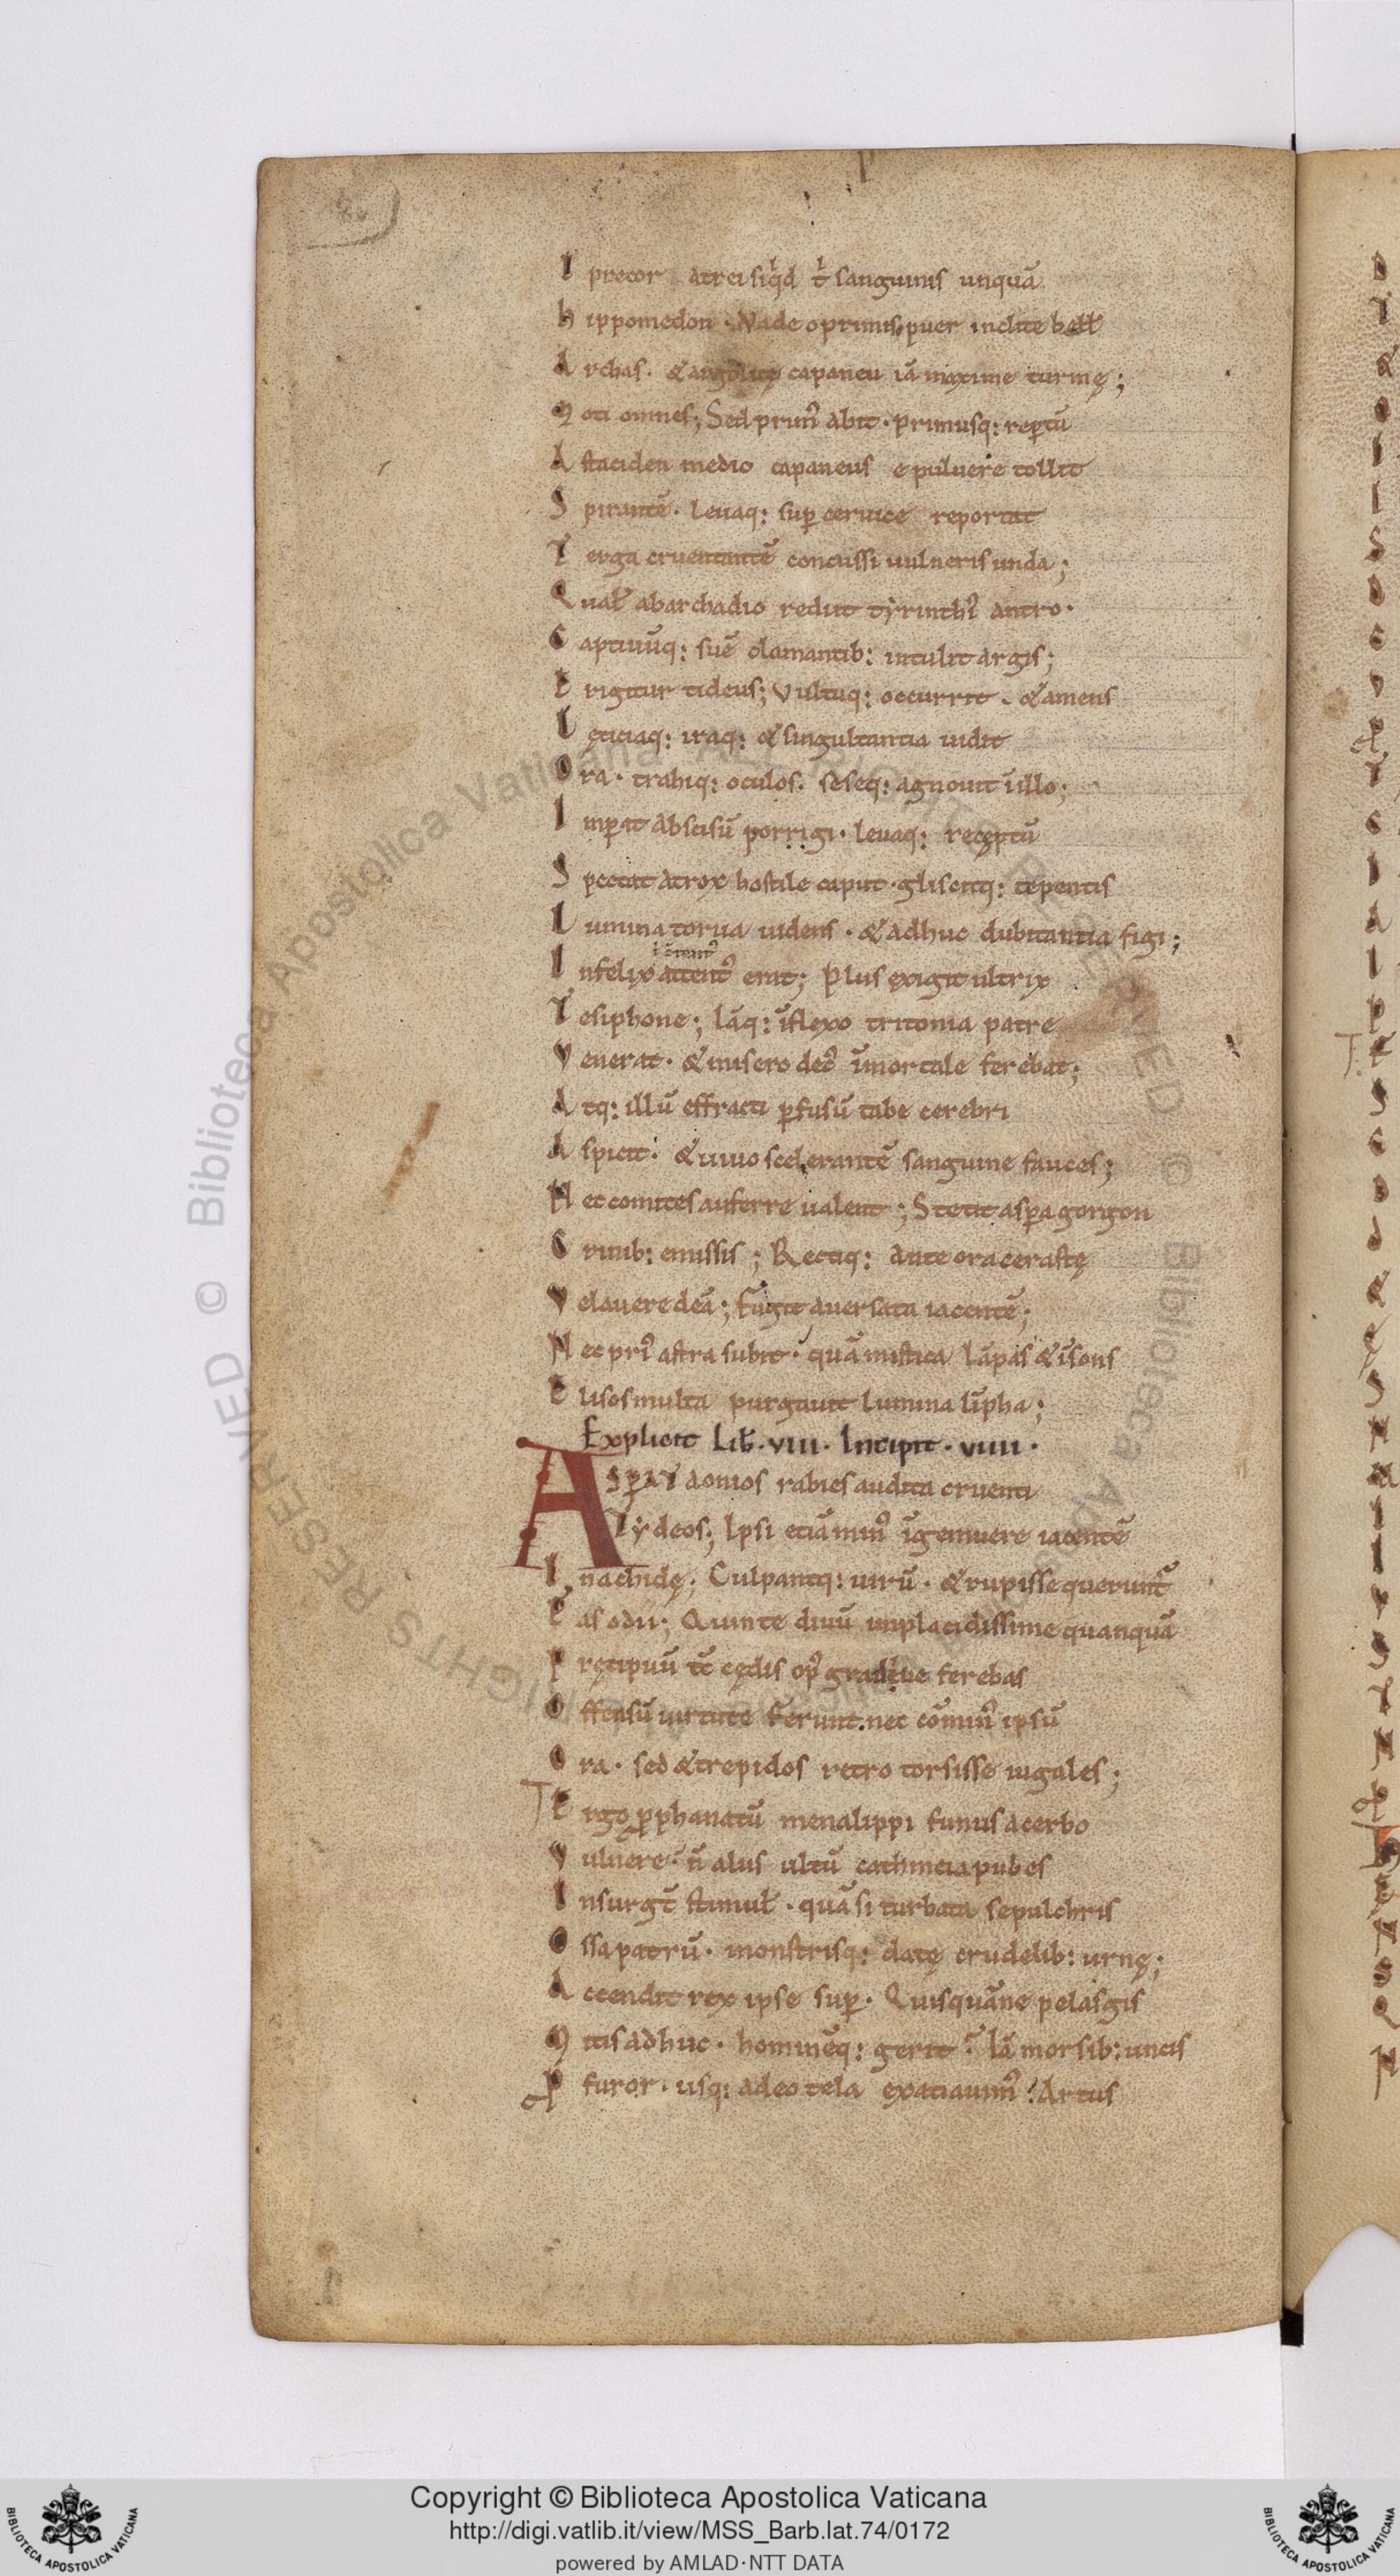 I precor atrei siqͥd tͥ sanguinis unquā
h ippomedon · Vade o primis puer inclite bell̄
A rchas · & argolicę capaneu iā maxime turmę ;
M oti omnes ; Sed prim᷒ abit · primusq: reꝑtū
A staciden medio capaneus e puluere tollit
S pirantē · leuaq: suꝑ ceruice reportat
T erga cruentantē concussi uulneris unda ;
Q ual̄ ab archadio rediit tẏrinthi᷒ antro ·
C aptiuūq: suē clamantib: intulit argis ;
E rigitur tideus ; Vultuq: occurrit · & amens
L ęticiaq: iraq: & singultantia uidit
O ra · trahiq: oculos · seseq: agnouit ī illo ;
I mꝑat abscisū porrigi · leuaq: receptū
S pectat atrox hostile caput · gliscitq: tepentis
L umina torua uidens · & adhuc dubitantia figi ;
I nfelix attent᷒ erat ; Plus exigit ultrix
T esiphone ; Iāq: īflexo tritonia patre
V enerat · & misero dec᷒ īmortale ferebat ;
A tq: illū effracti ꝑfusū tabe cerebri
A spicit · & uiuo scelerantē sanguine fauces ;
N ec comites auferre ualent ; Stetit asꝑa gorgon
C rinib: emissis ; Rectiq: ante ora cerastę
V elauere deā ; fugit auersata iacentē ;
N ec pri᷒ astra subit · quā mistica lāpas & īsons
E lisos multa purgauit lumina līpha ;
Explicit Lib̄ · VIII · Incipit · VIIII ·
ASꝑAT aonios rabies audita cruenti
Tẏdeos ; Ipsi etiā min᷒ īgemuere iacentē
I nachidę · Culpantq: uirū · & rupisse querunt᷒
F as odii ; Quin te diuū implacidissime quanquā
P ręcipuū tc̄ cędis op᷒ gradiue ferebas
O ffensū uirtute ferunt · nec comin᷒ ipsū
O ra · sed & trepidos retro torsisse iugales ;
E rgo ꝓphanatū menalippi funus acerbo
V ulnere · n̄ aliis ultū cathmeia pubes
I nsurgt̄ stimul̄ · quā si turbata sepulchris
O ssa patrū · monstrisq: datę crudelib: urnę ;
A ccendit rex ipse suꝑ · Quisquāne pelasgis
M itis adhuc · hominēq: gerit ? Iā morsib: uncis
P furor · usq: adeo tela exatiauim᷒ ! Artus
Copyright © Biblioteca Apostolica Vaticana
http://digi.vatlib.it/view/MSS_Barb.lat.74/0172
powered by AMLAD·NTT DATA